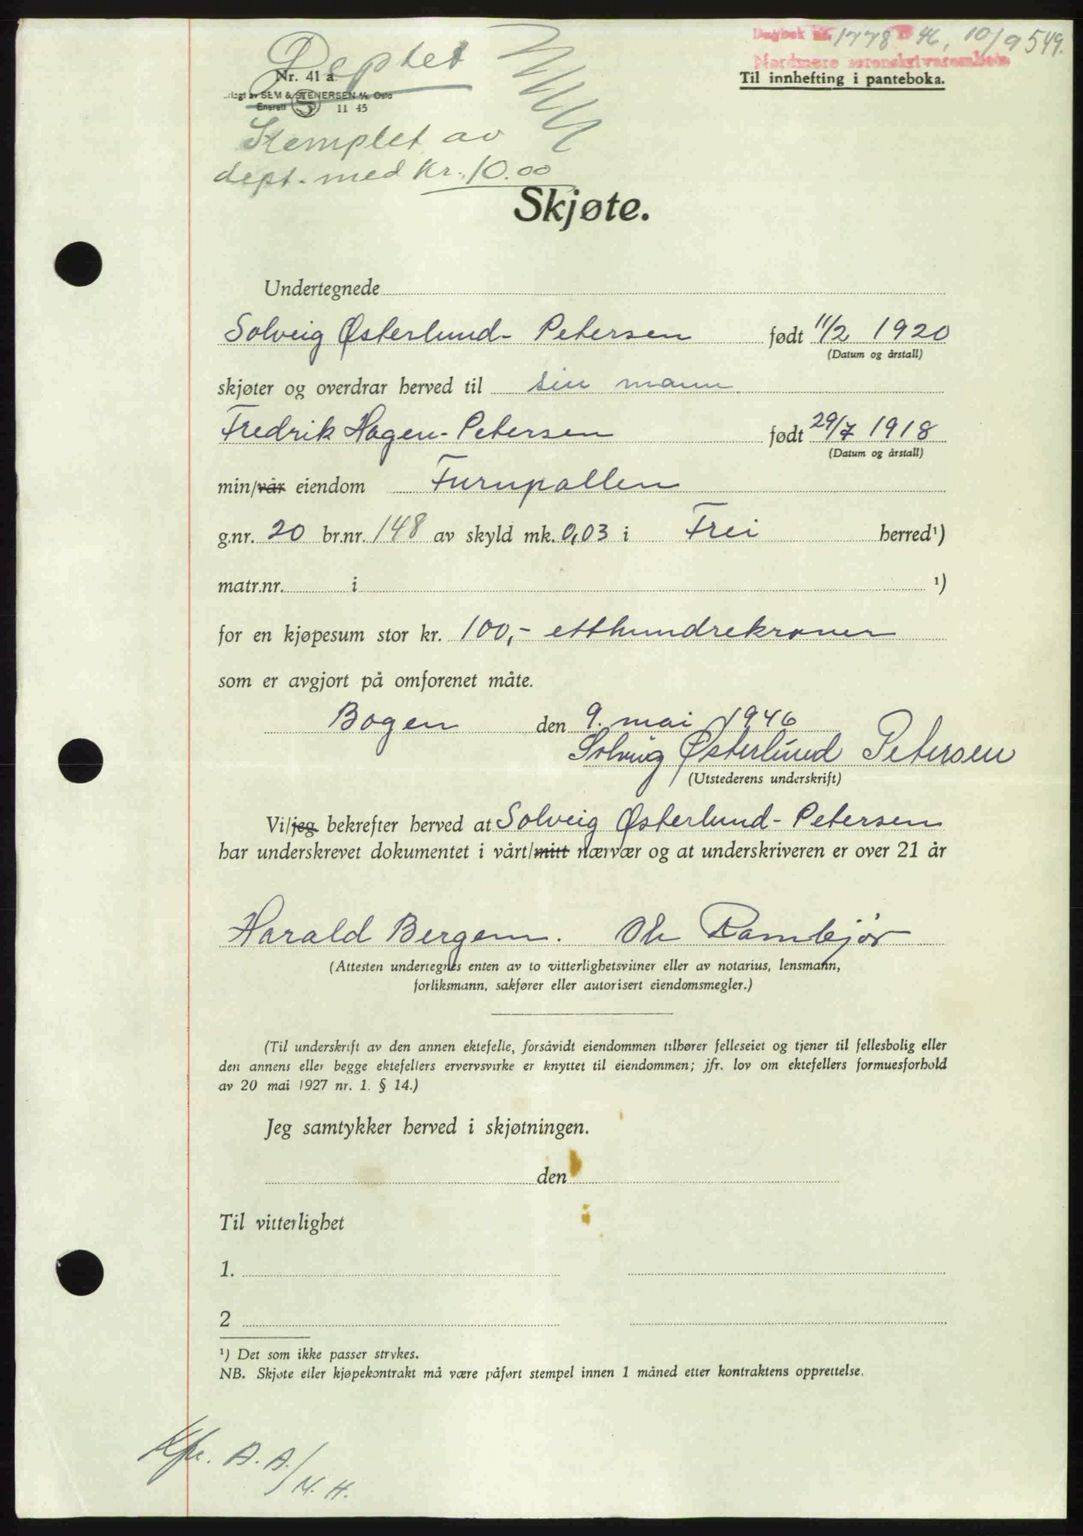 Dagbok nr. 1778 46, 10/9 549.
Nordmøre sorenskriverembete
Til innhefting i panteboka.
Deptet
Nr. 41 a
SEM & STENERSEN A/S Oslo
Enerett S 11 45
Stemplet av
dept. med kr. 10.00
Skjøte.
Undertegnede
Solveig Østerlund-Petersen født 11/2 1920
(Datum og årstall)
skjøter og overdrar herved til sin mann
Fredrik Hagen-Petersen født 29/7 1918
(Datum og årstall)
min/vår eiendom Furupallen
g.nr. 20 br.nr. 148 av skyld mk. 0,03 i Frei herred¹)
matr.nr. i ¹)
for en kjøpesum stor kr. 100,- etthundrekroner
som er avgjort på omforenet måte.
Bogen den 9. mai 1946
Solveig Østerlund Petersen
(Utstederens underskrift)
Vi/jeg bekrefter herved at Solveig Østerlund-Petersen
har underskrevet dokumentet i vårt/mitt nærvær og at underskriveren er over 21 år
Harald Bergem. Ole Rambjør
(Attesten undertegnes enten av to vitterlighetsvitner eller av notarius, lensmann,
forliksmann, sakfører eller autorisert eiendomsmegler.)
(Til underskrift av den annen ektefelle, forsåvidt eiendommen tilhører felleseiet og tjener til fellesbolig eller
den annens eller begge ektefellers ervervsvirke er knyttet til eiendommen; jfr. lov om ektefellers formuesforhold
av 20 mai 1927 nr. 1. § 14.)
Jeg samtykker herved i skjøtningen.
den
Til vitterlighet
1.
2
¹) Det som ikke passer strykes.
NB. Skjøte eller kjøpekontrakt må være påført stempel innen 1 måned etter kontraktens opprettelse.
Kfr. A.A./M.H.